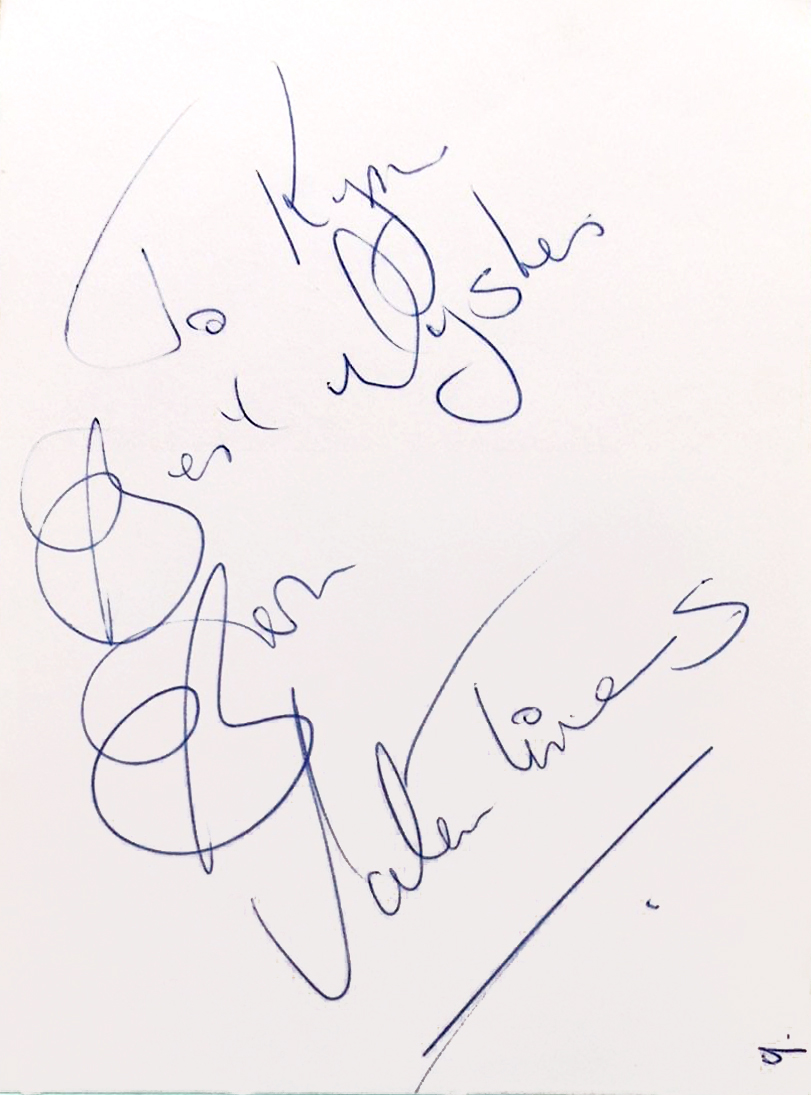 To Kym
Best Wyshes
Ben
Valentines